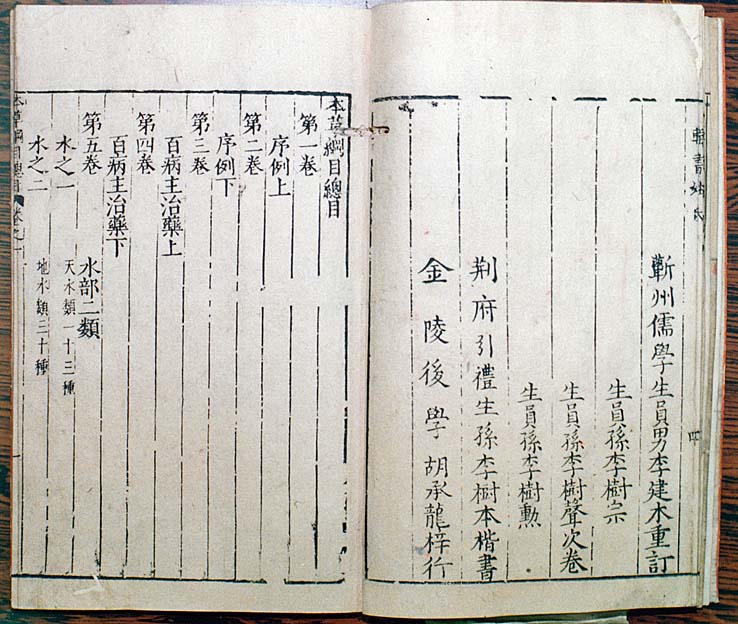 輯書姓氏
四
蘄州儒學生員男李建木重訂
生員孫李樹宗
生員孫李樹聲次卷
生員孫李樹勳
荆府引禮生孫李樹本楷書
金陵後學胡承龍梓行
本草綱目總目
第一卷
序例上
第二卷
序例下
第三卷
百病主治藥上
第四卷
百病主治藥下
第五卷
水部二類
水之一 天水類一十三種
水之二 地水類三十種
本草綱目總目 卷之一